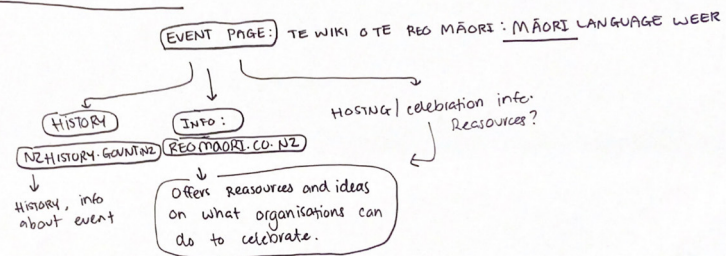 EVENT PAGE: TE WIKI O TE REO MĀORI : MĀORI LANGUAGE WEEK
HISTORY
NZHISTORY.GOVNT.NZ
HISTORY, info
about event
INFO:
REOMAORI.CO.NZ
Offers Reasources and ideas
on what organisations can
do to celebrate.
HOSTNG/celebration info.
Reasources?